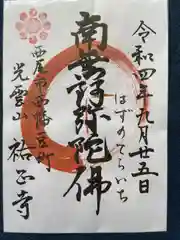 令和四年九月廿五日
はずのてらいち
南無阿弥陀佛
西尾市西幡豆町
光雲山
祐正寺